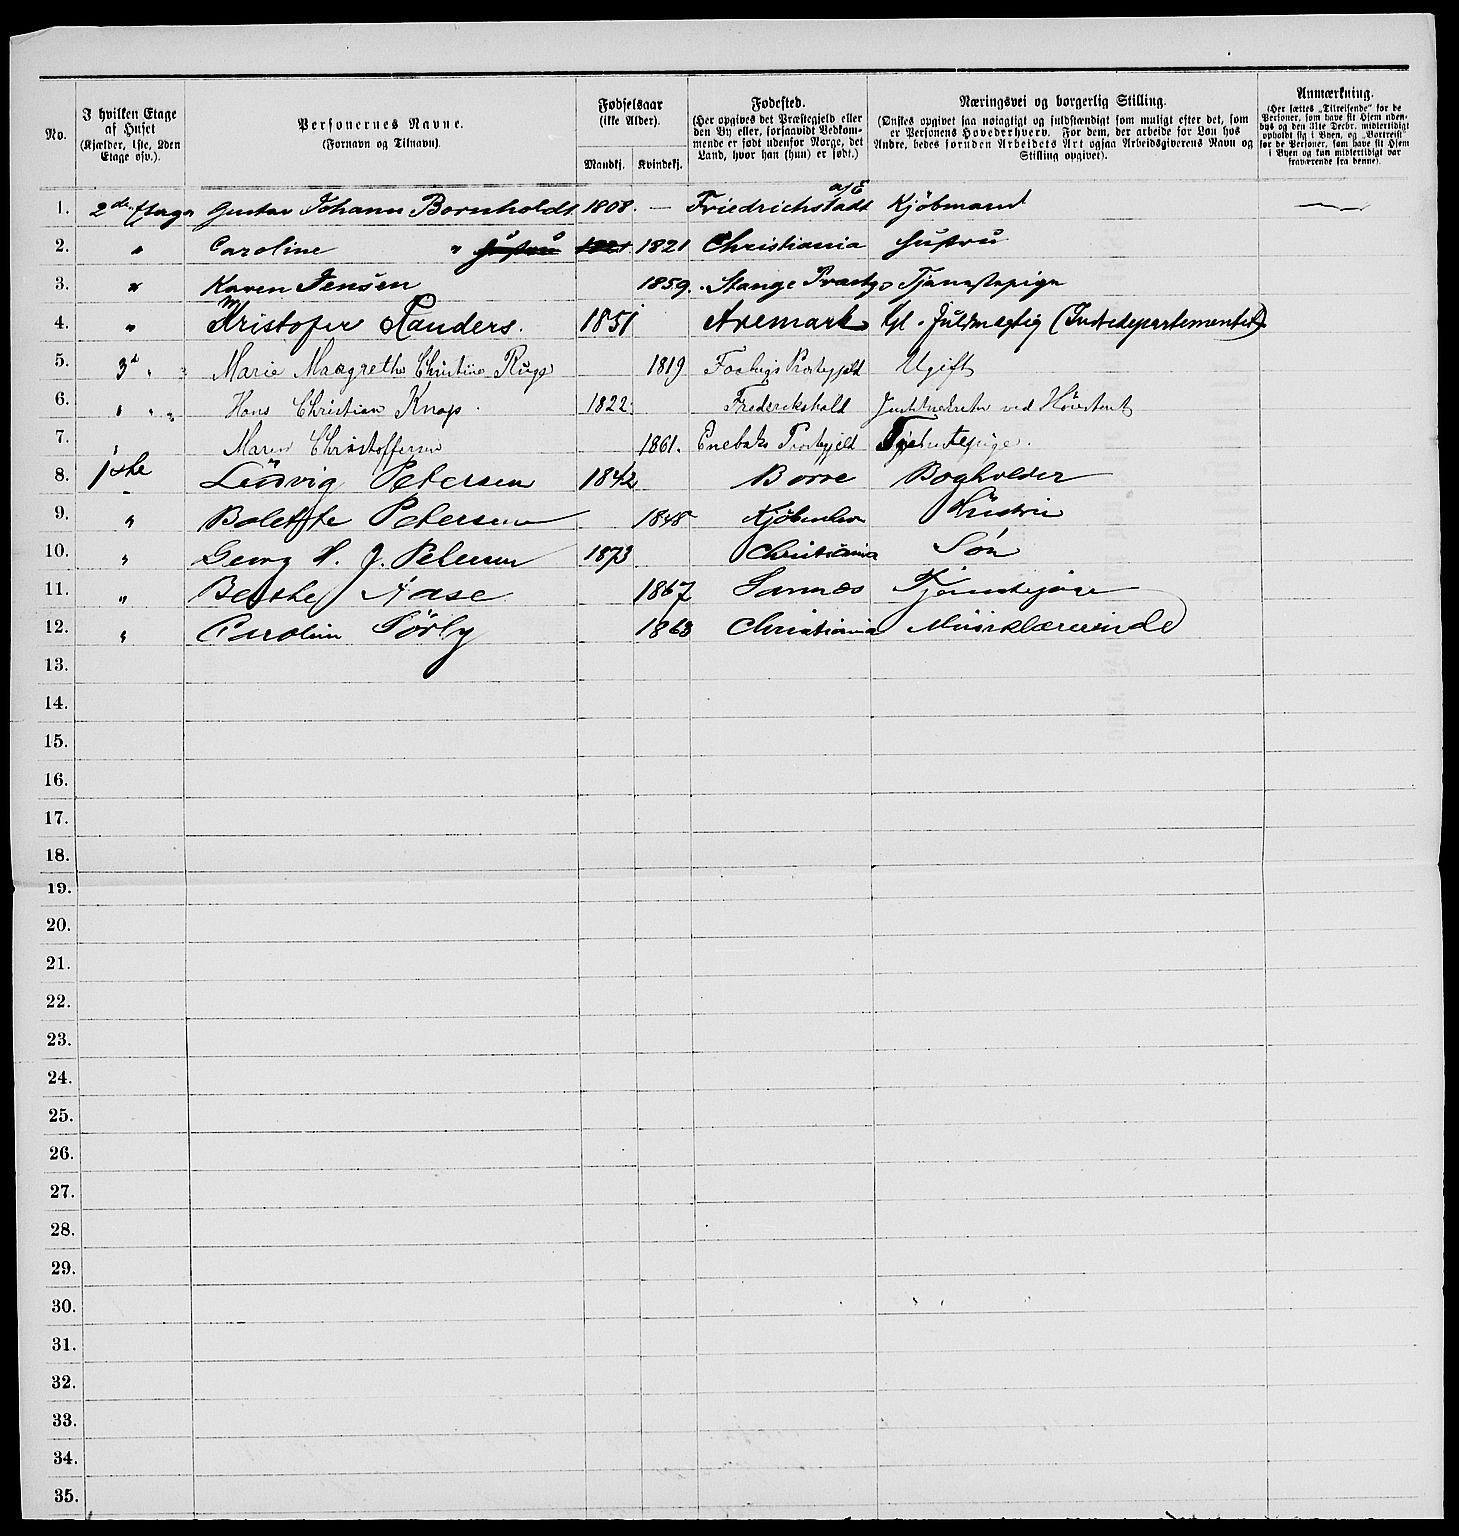 No. | I hvilken Etage af Huset (Kjælder, 1ste, 2den Etage osv.). | Personernes Navne. (Fornavn og Tilnavn). | Fødselsaar (ikke Alder). Mandkj. | Kvindekj. | Fødested. (Her opgives det Præstegjeld eller den By eller, forsaavidt Vedkommende er født udenfor Norge, det Land, hvor han (hun) er født.) | Næringsvei og borgerlig Stilling. (Ønskes opgivet saa nøiagtigt og fuldstændigt som muligt efter det, som er Personens Hovederhverv. For dem, der arbeide for Løn hos Andre, bedes foruden Arbeidets Art ogsaa Arbeidsgiverens Navn og Stilling opgivet). | Anmærkning. (Her sættes „Tilreisende" for de Personer, som have sit Hjem udenbys og den 31te Decbr. midlertidigt opholdt sig i Byen, og „Bortreist" for de Personer, som have sit Hjem i Byen og kun midlertidigt var fraværende fra denne).
1. | 2den Etage | Gustav Johann Bornholdt | 1808. | — | Friedrichstadt a/E | Kjøbmand | —
2. | " | Caroline " Hustru | 1821 | 1821 | Christiania | Hustru
3. | " | Karen Jensen | | 1859. | Stange | Tjenestepige
4. | " | Kristofer Randers. | 1851 | | Aremark | Fuldmægtig
5. | 3d " " | Marie Margrethe Christine | | 1819 | | Ugift
6. | " " " | Hans Christian Knap. | 1822 | | Frederikshald | ved
7. | " | Maren Christoffersen | | 1861. | Enebak Prstgjeld | Tjenestepige.
8. | 1ste | Ludvig Petersen | 1842 | | Borre | Bogholder
9. | " | Bolette Petersen | | 1848 | Kjøbenhavn | Hustru
10. | " | Georg H. J. Petersen | 1873 | | Christiania | Søn
11. | " | Aase | | 1867 | | Tjenestepige
12. | " | Caroline Sørby | | 1863 | Christiania | Musiklærerinde
13.
14.
15.
16.
17.
18.
19.
20.
21.
22.
23.
24.
25.
26.
27.
28.
29.
30.
31.
32.
33.
34.
35.